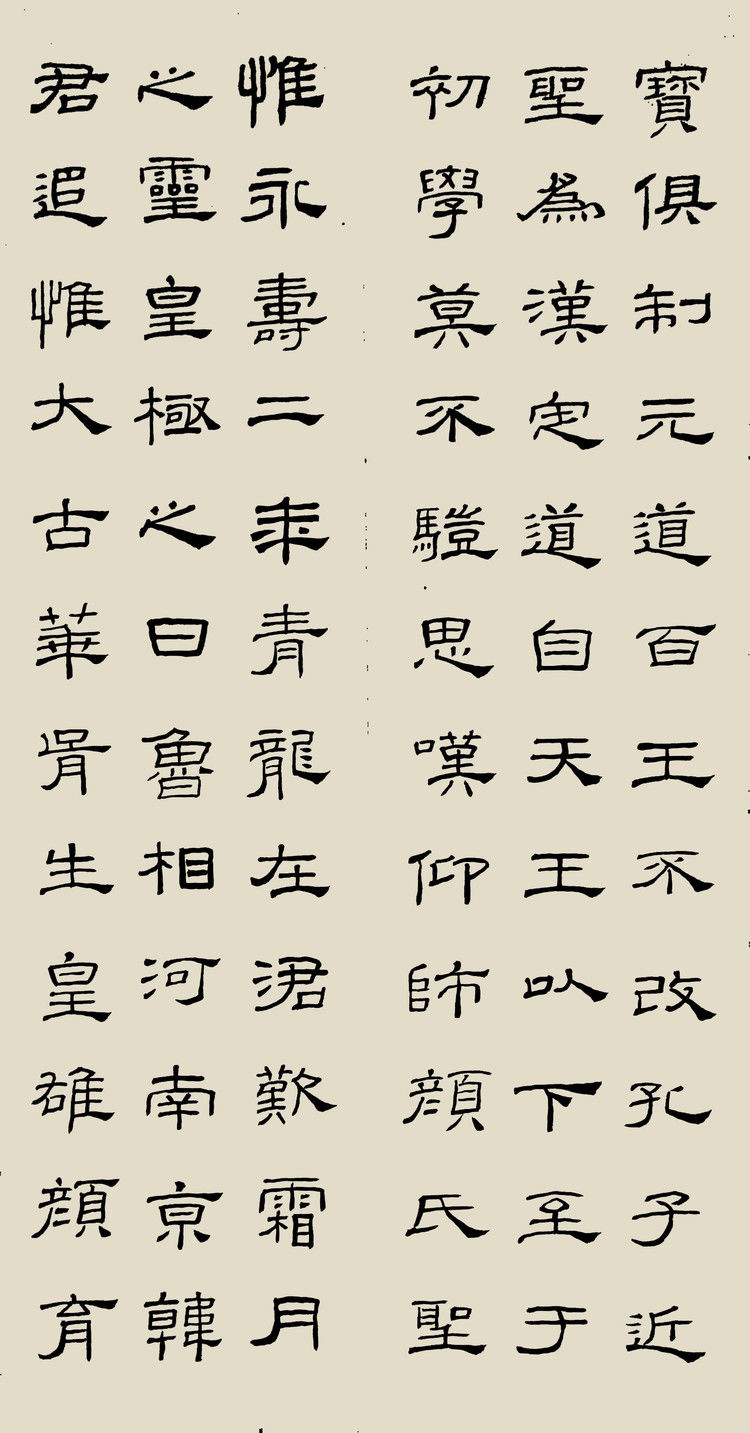 惟永壽二年青龍在涒歎霜月
之靈皇極之日魯相河南京韓
君追惟大古華胥生皇雄顏育
寶俱制元道百王不改孔子近
聖為漢定道自天王以下至于
初學莫不𩥉思嘆仰師顏氏聖